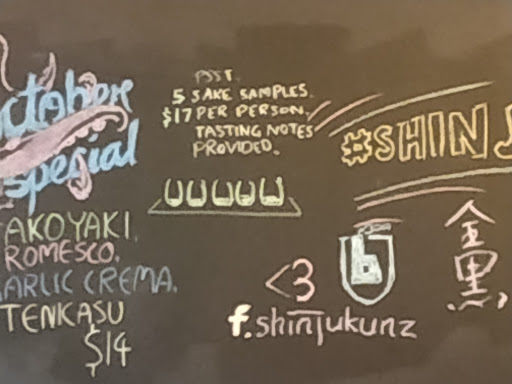 October
Special
TAKOYAKI,
ROMESCO,
GARLIC CREMA,
TENKASU
$14
PSST.
5 SAKE SAMPLES.
$17 PER PERSON.
TASTING NOTES
PROVIDED.
#SHINJ
<3 b
f.shinjukunz
金
黒